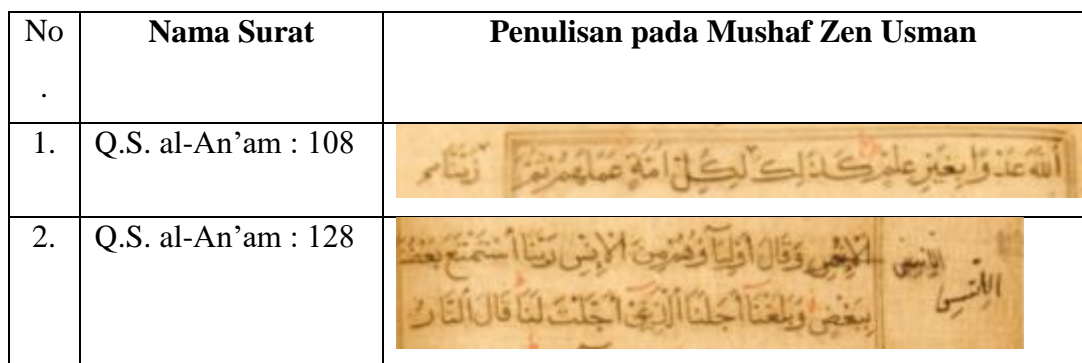 No
.
Nama Surat
Penulisan pada Mushaf Zen Usman
1.
Q.S. al-An’am : 108
اللَّهَ عَدْوًا بِغَيْرِ عِلْمٍ كَذَٰلِكَ لِكُلِّ أُمَّةٍ عَمَلَهُمْ ثُمَّ زَيَّنَّا
2.
Q.S. al-An’am : 128
وَقَالَ أَوْلِيَاؤُهُمْ مِنَ الْإِنْسِ رَبَّنَا اسْتَمْتَعَ بَعْضُنَا
بِبَعْضٍ وَبَلَغْنَا أَجَلَنَا الَّذِي أَجَّلْتَ لَنَا قَالَ النَّارُ